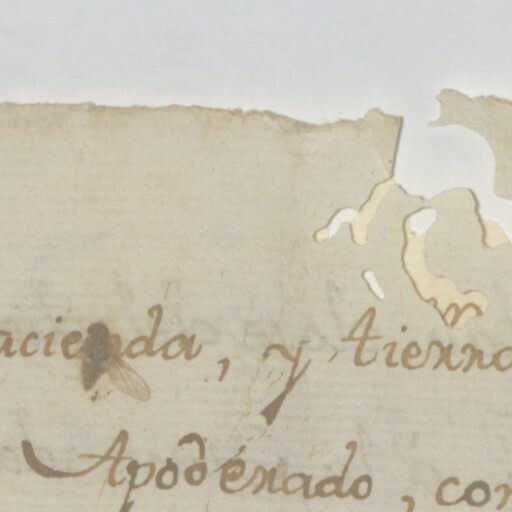 acienda, y tienno
Apoderado, con